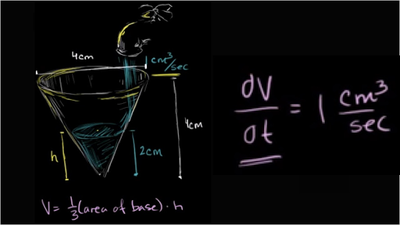 4cm
1 cm³/sec
4cm
h
2cm
V = 1/3 (area of base) · h
dV/dt = 1 cm³/sec